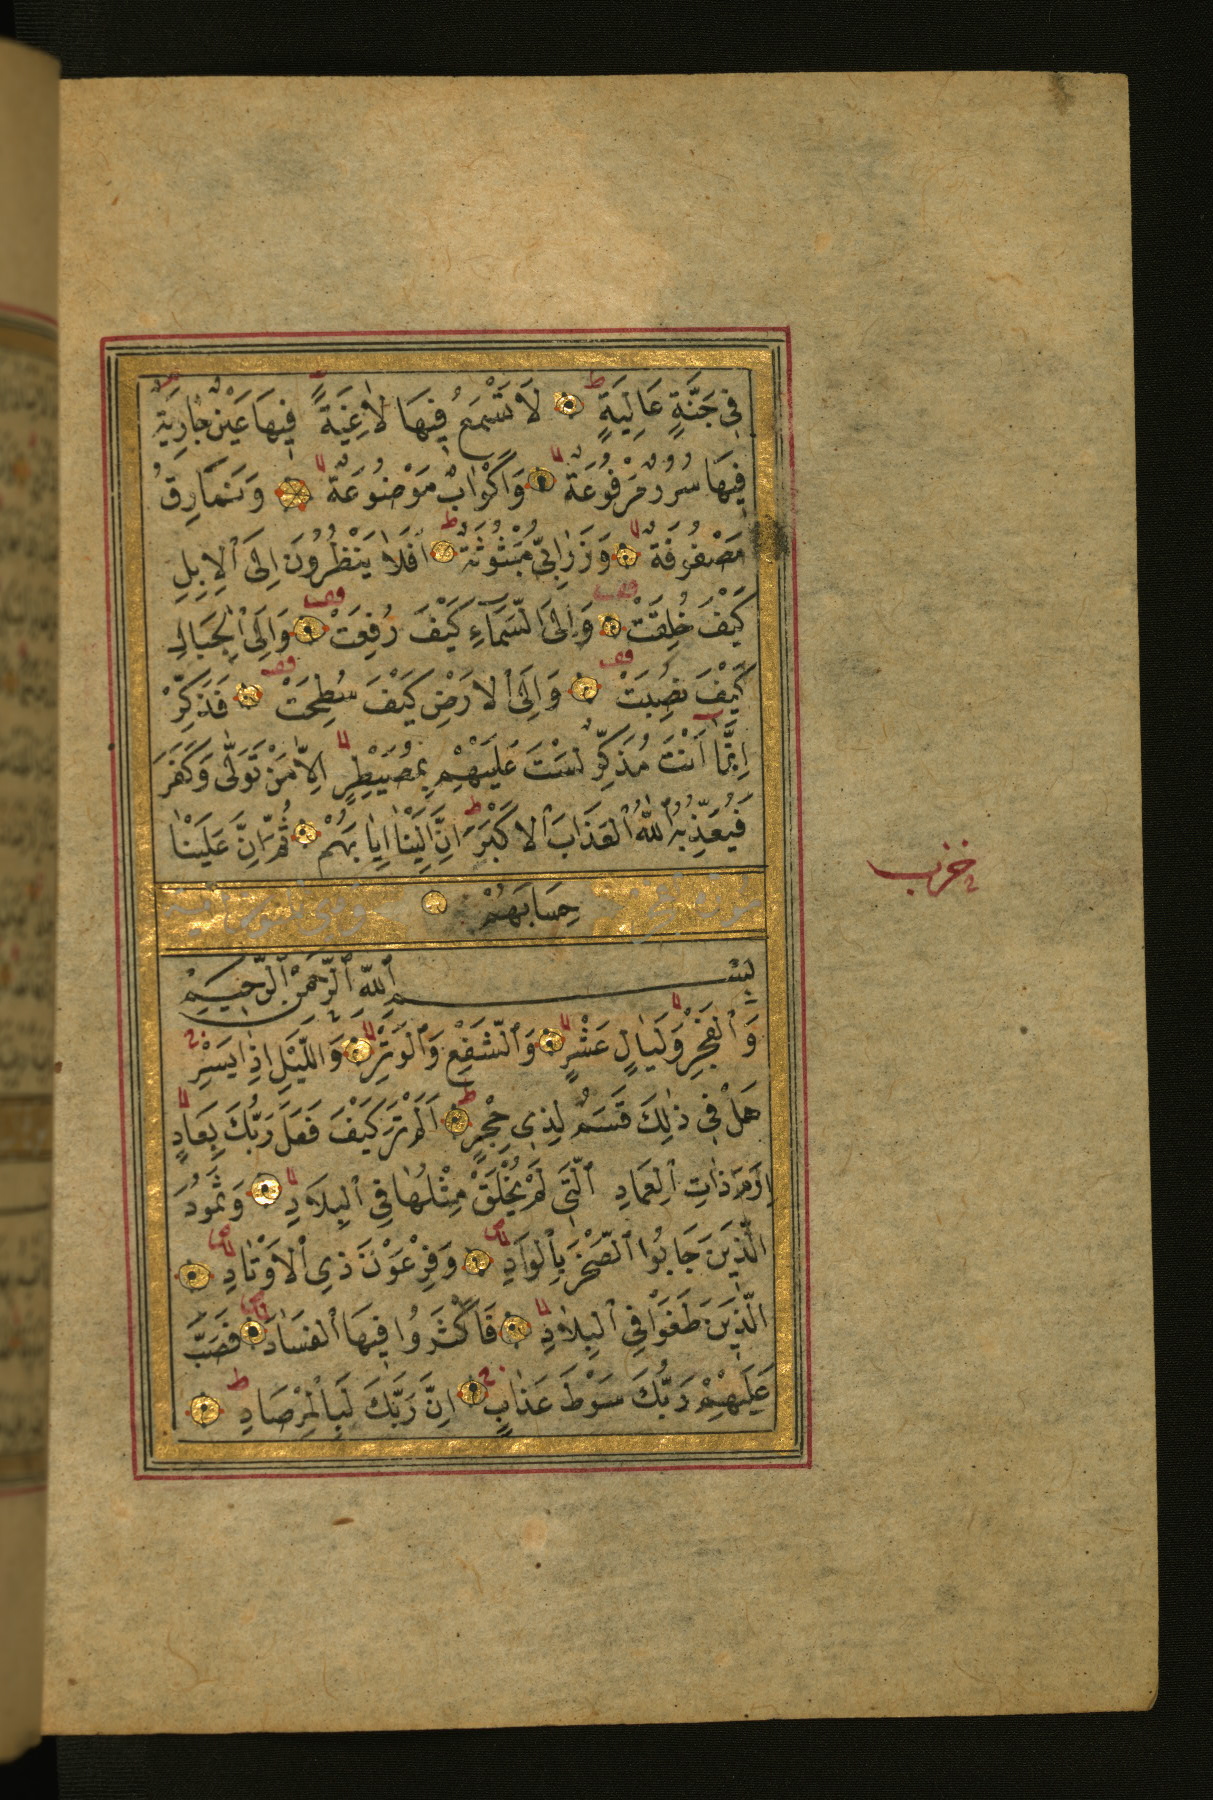 فِي جَنَّةٍ عَالِيَةٍ لَا تَسْمَعُ فِيهَا لَاغِيَةً فِيهَا عَيْنٌ جَارِيَةٌ
فِيهَا سُرُرٌ مَرْفُوعَةٌ وَأَكْوَابٌ مَوْضُوعَةٌ وَنَمَارِقُ
مَصْفُوفَةٌ وَزَرَابِيُّ مَبْثُوثَةٌ اَفَلَا يَنْظُرُونَ اِلَى الْاِبِلِ
كَيْفَ خُلِقَتْ وَاِلَى السَّمَاءِ كَيْفَ رُفِعَتْ وَاِلَى الْجِبَالِ
كَيْفَ نُصِبَتْ وَاِلَى الْاَرْضِ كَيْفَ سُطِحَتْ فَذَكِّرْ
اِنَّمَا اَنْتَ مُذَكِّرٌ لَسْتَ عَلَيْهِمْ بِمُصَيْطِرٍ اِلَّا مَنْ تَوَلَّى وَكَفَرَ
فَيُعَذِّبُهُ اللّٰهُ الْعَذَابَ الْاَكْبَرَ اِنَّ اِلَيْنَا اِيَابَهُمْ ثُمَّ اِنَّ عَلَيْنَا
حِسَابَهُمْ
سورة الفجر
بِسْمِ اللّٰهِ الرَّحْمٰنِ الرَّحِيمِ
وَالْفَجْرِ وَلَيَالٍ عَشْرٍ وَالشَّفْعِ وَالْوَتْرِ وَاللَّيْلِ اِذَا يَسْرِ
هَلْ فِي ذٰلِكَ قَسَمٌ لِذِي حِجْرٍ اَلَمْ تَرَ كَيْفَ فَعَلَ رَبُّكَ بِعَادٍ
اِرَمَ ذَاتِ الْعِمَادِ الَّتِي لَمْ يُخْلَقْ مِثْلُهَا فِي الْبِلَادِ وَثَمُودَ
الَّذِينَ جَابُوا الصَّخْرَ بِالْوَادِ وَفِرْعَوْنَ ذِي الْاَوْتَادِ
الَّذِينَ طَغَوْا فِي الْبِلَادِ فَاَكْثَرُوا فِيهَا الْفَسَادَ فَصَبَّ
عَلَيْهِمْ رَبُّكَ سَوْطَ عَذَابٍ اِنَّ رَبَّكَ لَبِالْمِرْصَادِ